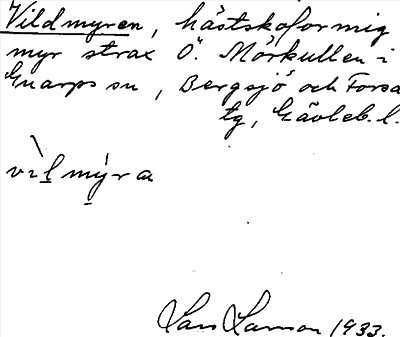 Vildmyren, hästskoformig
myr strax Ö. Mörkullen i
Gnarps sn, Bergsjö och Forsa
tg, Gävleb. l.
vìl mýra
Lars Larson 1933.